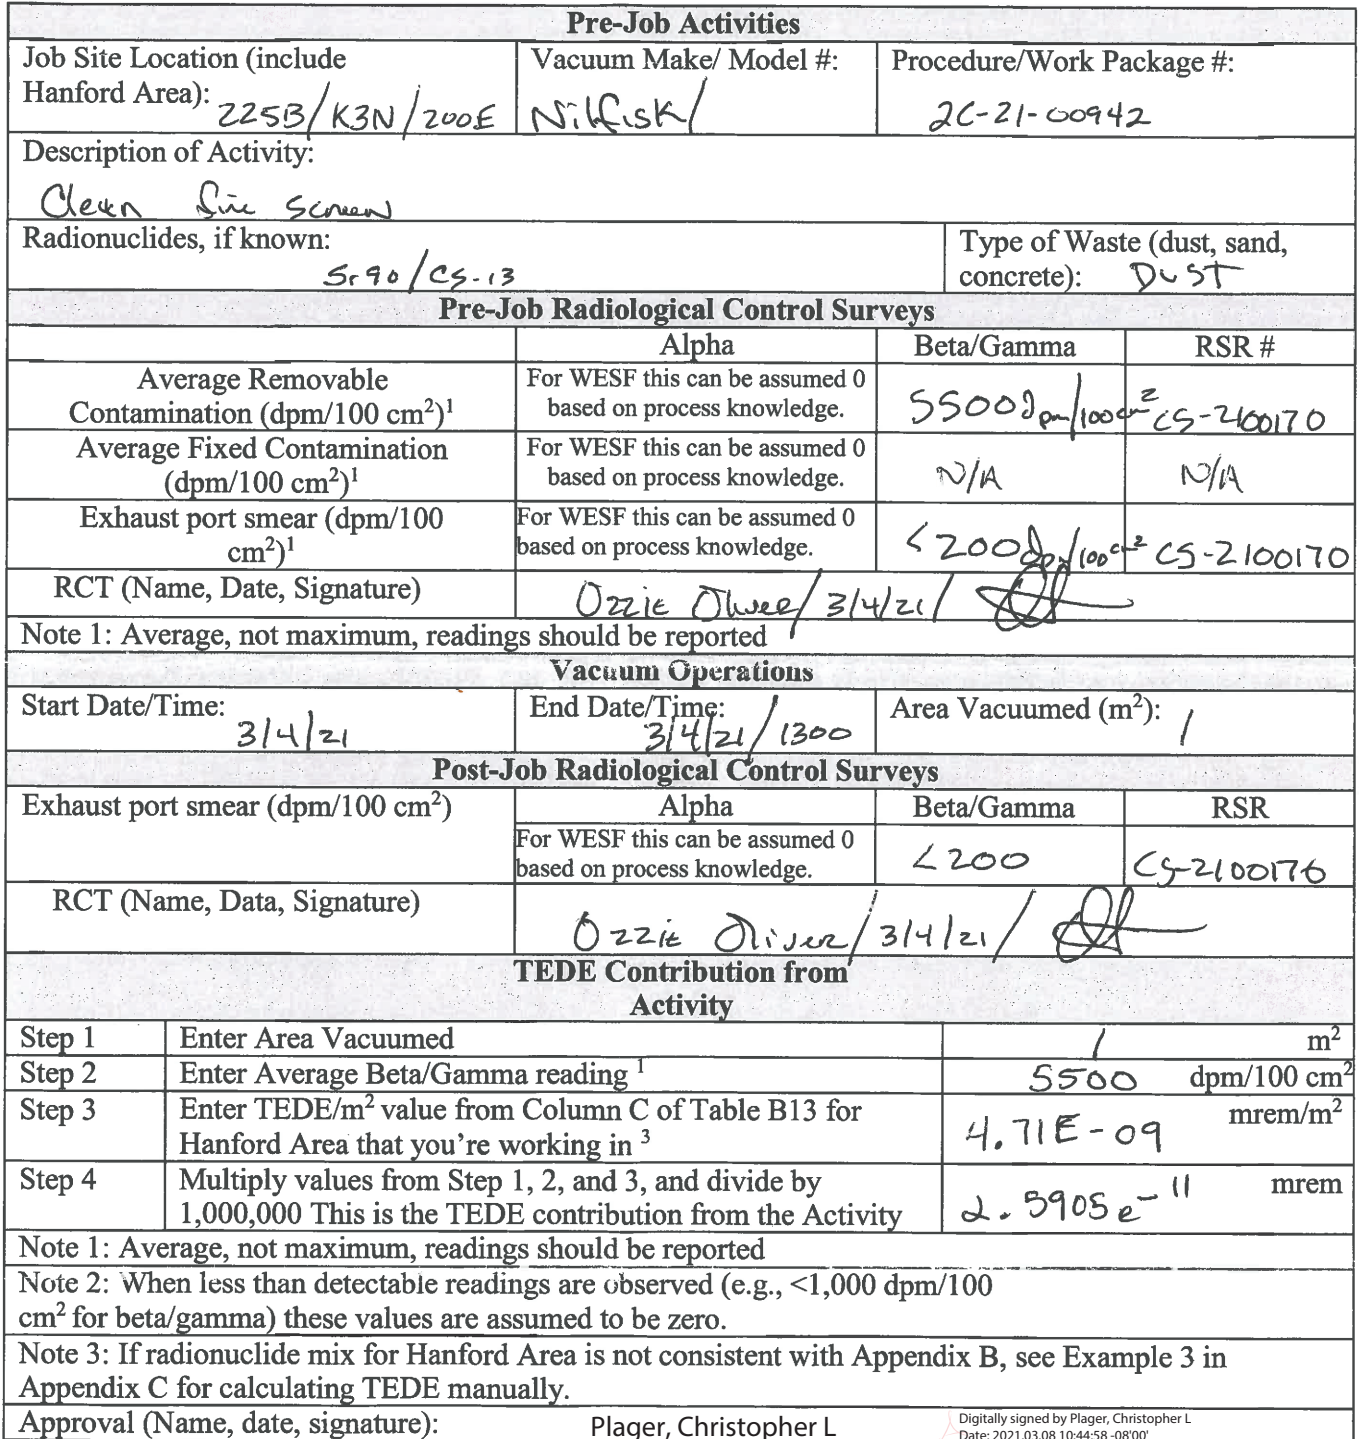 Pre-Job Activities
Job Site Location (include Hanford Area): 225B/K3N/200E
Vacuum Make/ Model #: Nilfisk/
Procedure/Work Package #: 2C-21-00942
Description of Activity:
Clean fire screen
Radionuclides, if known: Sr90/CS-13
Type of Waste (dust, sand, concrete): DUST
Pre-Job Radiological Control Surveys
Alpha Beta/Gamma RSR #
Average Removable Contamination (dpm/100 cm²)¹
For WESF this can be assumed 0 based on process knowledge.
5500 dpm/100cm² CS-2100170
Average Fixed Contamination (dpm/100 cm²)¹
For WESF this can be assumed 0 based on process knowledge.
N/A N/A
Exhaust port smear (dpm/100 cm²)¹
For WESF this can be assumed 0 based on process knowledge.
<200 dpm/100cm² CS-2100170
RCT (Name, Date, Signature) Ozzie Oliver/3/4/21/
Note 1: Average, not maximum, readings should be reported
Vacuum Operations
Start Date/Time: 3/4/21
End Date/Time: 3/4/21/1300
Area Vacuumed (m²): 1
Post-Job Radiological Control Surveys
Exhaust port smear (dpm/100 cm²) Alpha Beta/Gamma RSR
For WESF this can be assumed 0 based on process knowledge.
<200 CS-2100176
RCT (Name, Data, Signature) Ozzie Oliver/3/4/21/
TEDE Contribution from
Activity
Step 1 Enter Area Vacuumed 1 m²
Step 2 Enter Average Beta/Gamma reading ¹ 5500 dpm/100 cm²
Step 3 Enter TEDE/m² value from Column C of Table B13 for Hanford Area that you're working in ³ 4.71E-09 mrem/m²
Step 4 Multiply values from Step 1, 2, and 3, and divide by 1,000,000 This is the TEDE contribution from the Activity 2.5905e-11 mrem
Note 1: Average, not maximum, readings should be reported
Note 2: When less than detectable readings are observed (e.g., <1,000 dpm/100
cm² for beta/gamma) these values are assumed to be zero.
Note 3: If radionuclide mix for Hanford Area is not consistent with Appendix B, see Example 3 in
Appendix C for calculating TEDE manually.
Approval (Name, date, signature): Plager, Christopher L
Digitally signed by Plager, Christopher L
Date: 2021.03.08 10:44:58 -08'00'